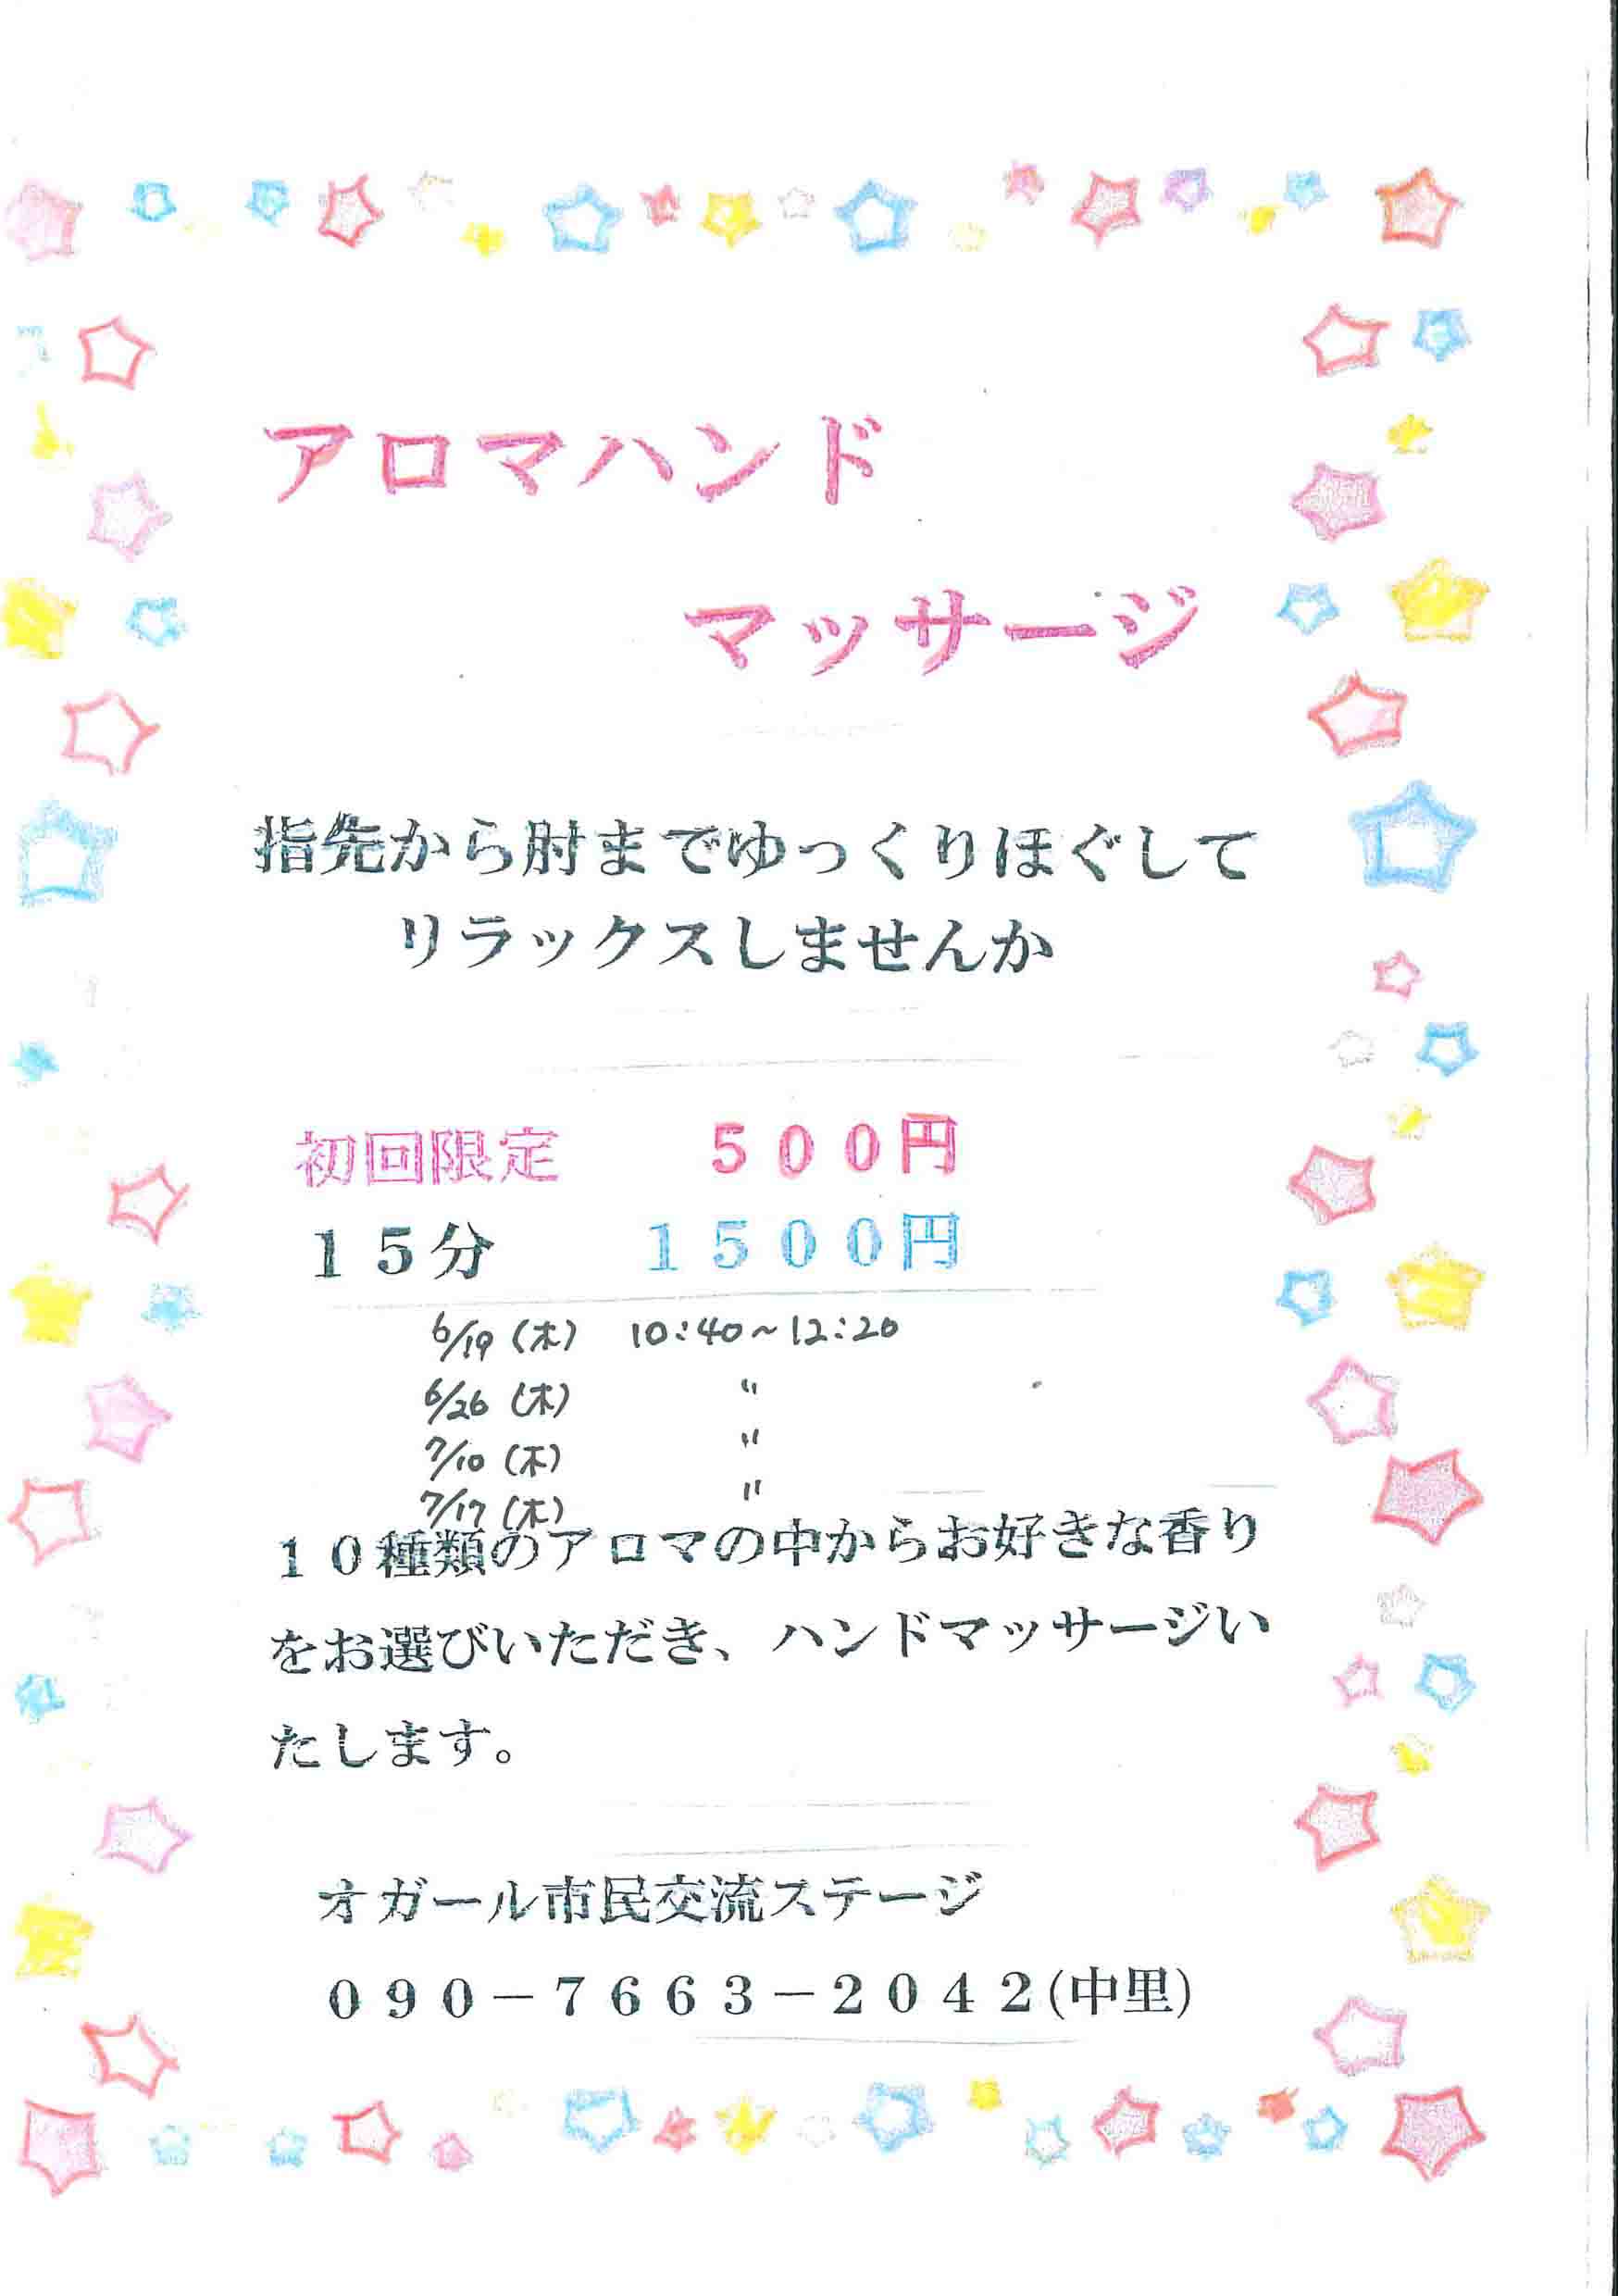 アロマハンド
マッサージ
指先から肘までゆっくりほぐして
リラックスしませんか
初回限定　５００円
１５分　１５００円
6/19（木）　10:40～12:20
6/26（木）　〃
7/10（木）　〃
7/17（木）　〃
１０種類のアロマの中からお好きな香り
をお選びいただき、ハンドマッサージい
たします。
オガール市民交流ステージ
０９０－７６６３－２０４２(中里)